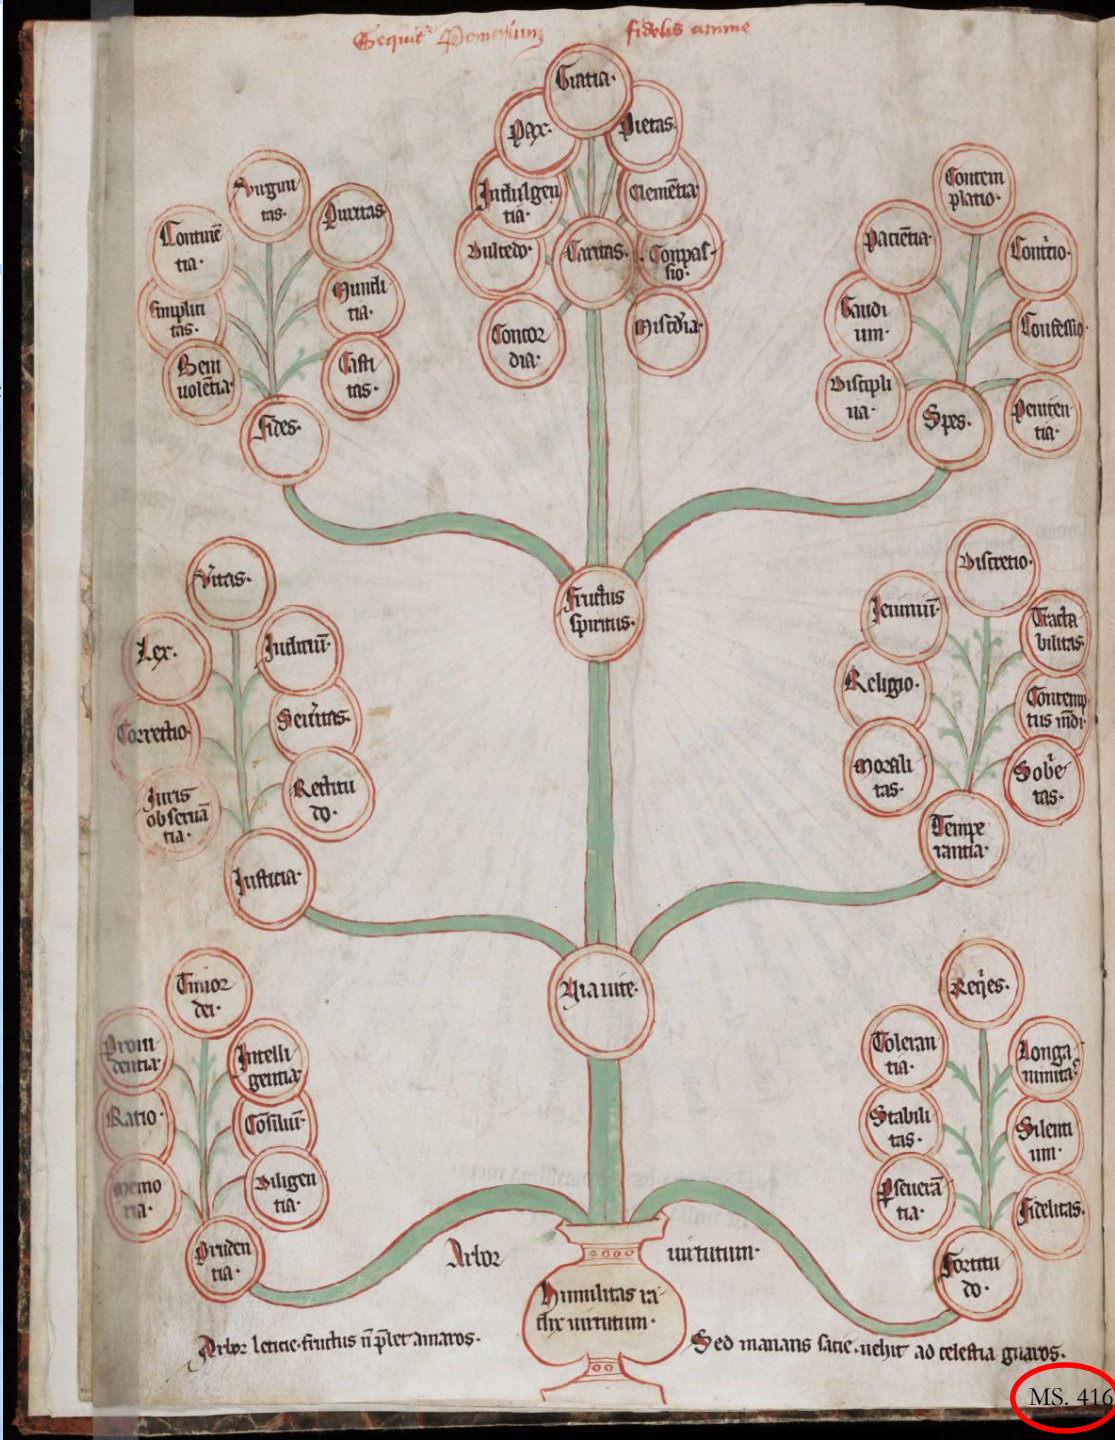 Sequit Pomerium fidelis anime
Gratia·
Pax·
Pietas·
Indulgen
tia·
Clemētia·
Dulcedo·
Caritas·
Conpas
sio·
Concor
dia·
Mis̄c̄dia·
Virgini
tas·
Continē
tia·
Puritas·
Simplici
tas·
Mundi
tia·
Beni
uolētia·
Casti
tas·
Fides·
Contem
platio·
Paciētia·
Cont'tio·
Gaudi
um·
Confessio·
Discipli
na·
Peniten
tia·
Spes·
Fructus
spiritus·
V'itas·
Lex·
Judiciū·
Correctio·
Seu'itas·
Juris
obseruā
tia·
Rectitu
do·
Justicia·
Discretio·
Jeiuniū·
Tracta
bilitas·
Religio·
Contemp
tus mūdi·
Morali
tas·
Sob'e
tas·
Tempe
rantia·
Via uite·
Timor
dei·
Proui
dentia·
Intelli
gentia·
Ratio·
Cōsiliū·
Memo
ria·
Diligen
tia·
Pruden
tia·
Req'es·
Toleran
tia·
Longa
nimitas·
Stabili
tas·
Silenti
um·
Pseuerā
tia·
Fidelitas·
Fortitu
do·
Arbor uirtutum·
Humilitas ra
dix uirtutum·
Arbor leticie·fructus n̄ p̄bet amaros·
Sed manans facie·uehit ad celestia gnaros·
MS. 416